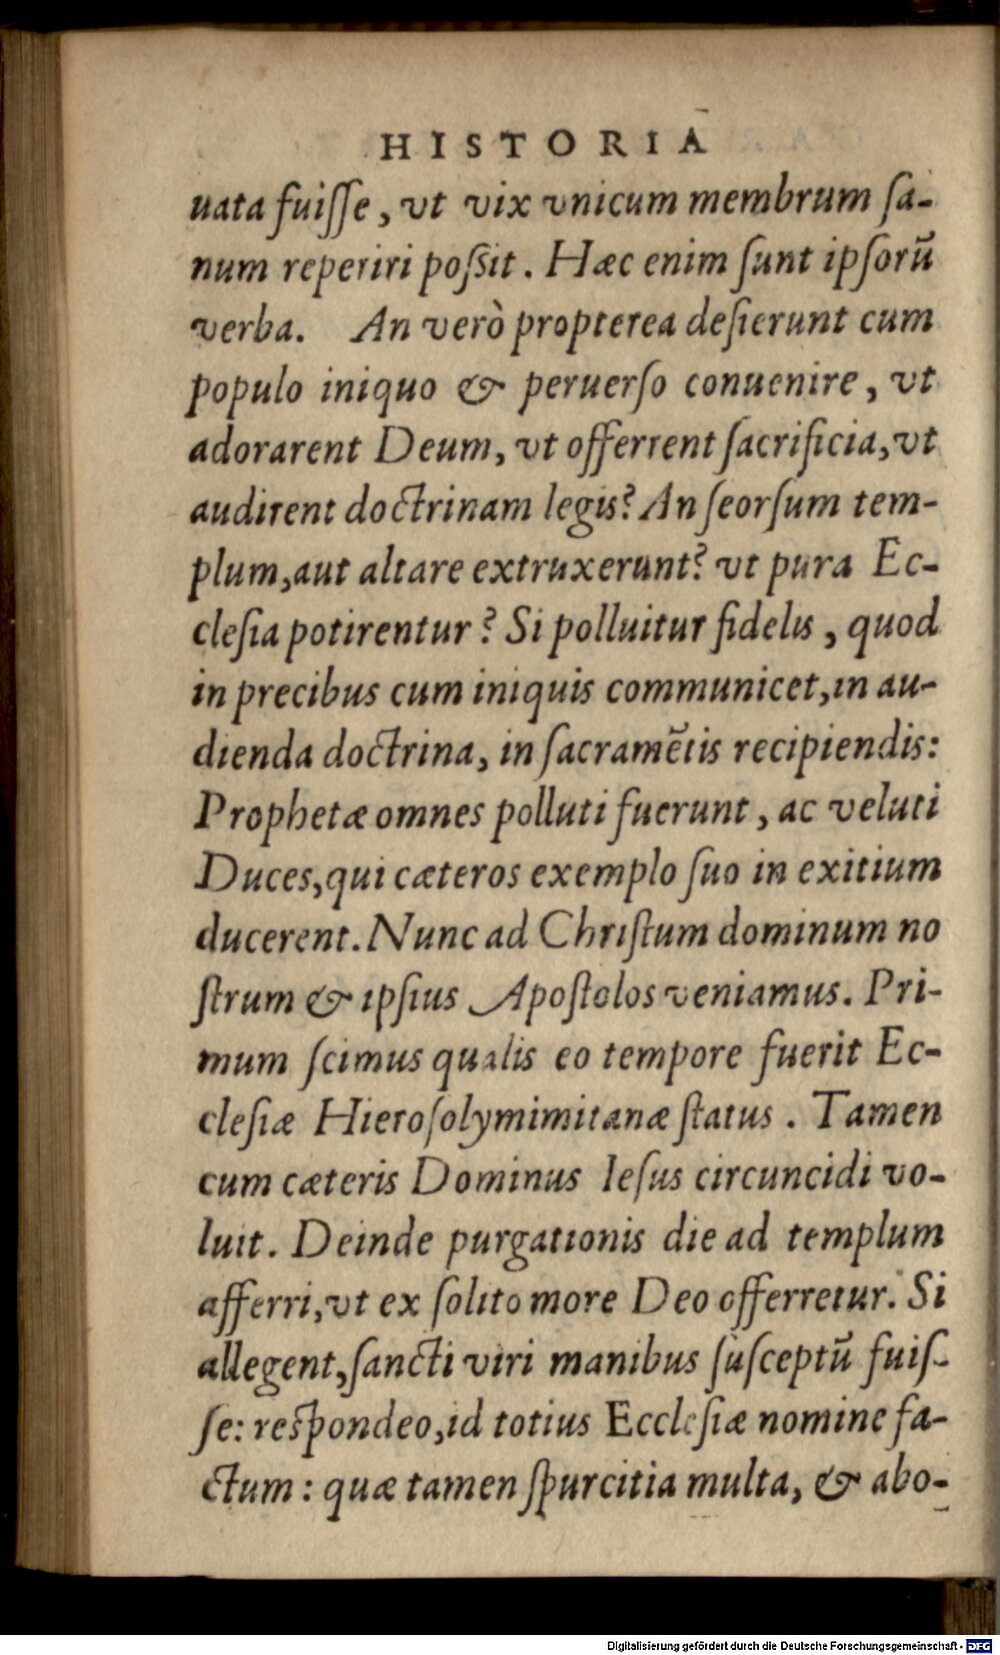 HISTORIA
uata fuiſſe, vt vix vnicum membrum ſa-
num reperiri poſsit. Hæc enim ſunt ipſorū
verba. An verò propterea deſierunt cum
populo iniquo & peruerſo conuenire, vt
adorarent Deum, vt offerrent ſacrificia, vt
audirent doctrinam legis? An ſeorſum tem-
plum, aut altare extruxerunt? vt pura Ec-
cleſia potirentur? Si polluitur fidelis, quod
in precibus cum iniquis communicet, in au-
dienda doctrina, in ſacramētis recipiendis:
Prophetæ omnes polluti fuerunt, ac veluti
Duces, qui cæteros exemplo ſuo in exitium
ducerent. Nunc ad Chriſtum dominum no
ſtrum & ipſius Apoſtolos veniamus. Pri-
mum ſcimus qualis eo tempore fuerit Ec-
cleſiæ Hieroſolymimitanæ ſtatus. Tamen
cum cæteris Dominus Ieſus circuncidi vo-
luit. Deinde purgationis die ad templum
afferri, vt ex ſolito more Deo offerretur. Si
allegent, ſancti viri manibus ſuſceptū fuiſ-
ſe: reſpondeo, id totius Eccleſiæ nomine fa-
ctum: quæ tamen ſpurcitia multa, & abo-
Digitalisierung gefördert durch die Deutsche Forschungsgemeinschaft - DFG